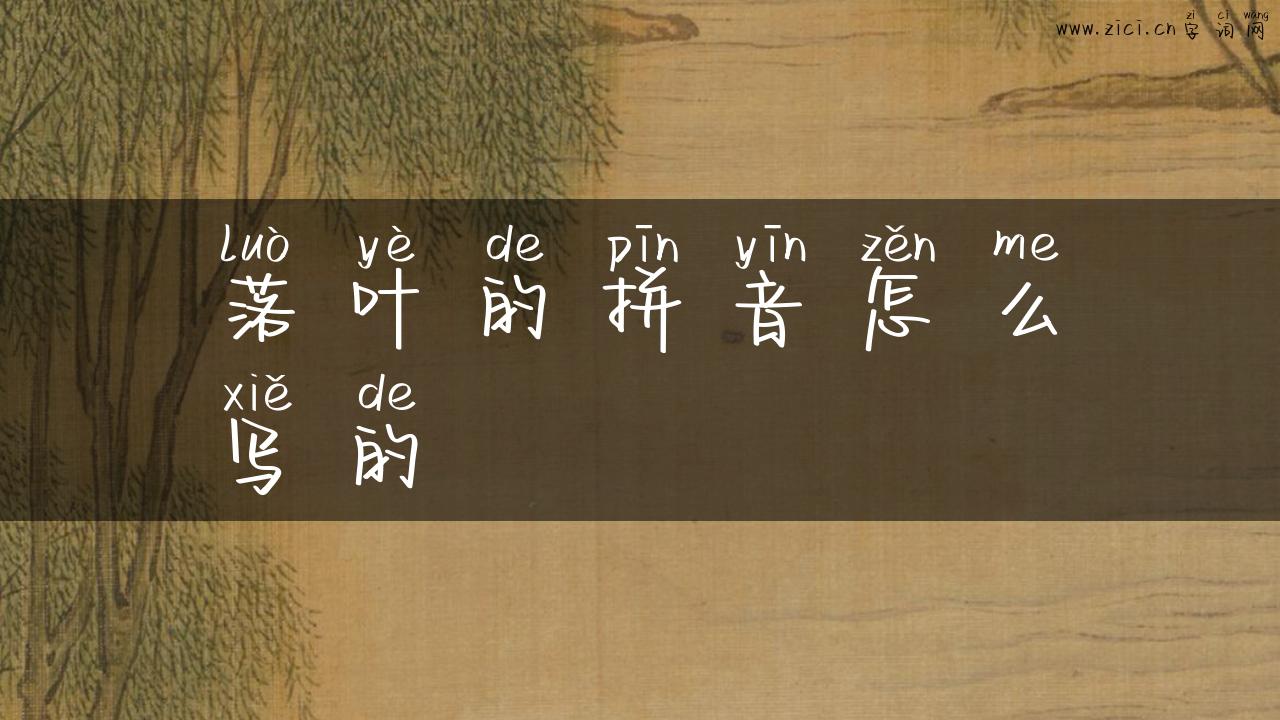 zì cí wǎng
www.zici.cn 字词网
luò yè de pīn yīn zěn me
落叶的拼音怎么
xiě de
写的